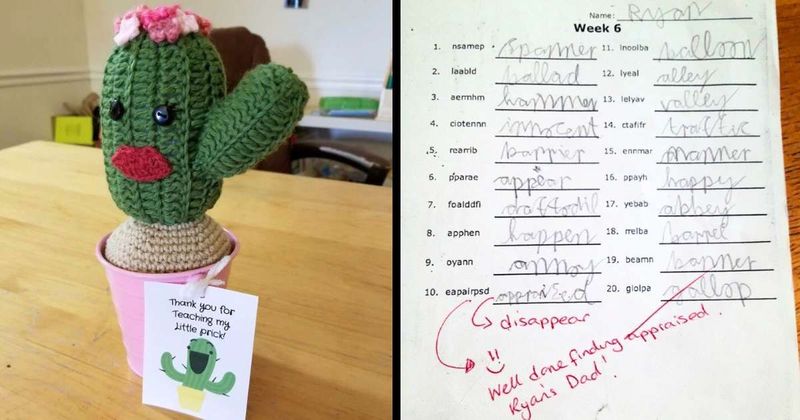 Thank you for
Teaching my
Little prick!
Name: Ryan
Week 6
1. nsamep spanner 11. lnoolba balloon
2. laabld ballad 12. lyeal alley
3. aermhm hammer 13. lelyav valley
4. ciotennn innocent 14. ctafifr traffic
5. rearrib barrier 15. ennmar manner
6. pparae appear 16. ppayh happy
7. foalddfi daffodil 17. yebab abbey
8. apphen happen 18. rrelba barrel
9. oyann annoy 19. beamn banner
10. eapairpsd appraised 20. glolpa gallop
disappear
!!
Well done finding appraised.
Ryan's Dad!